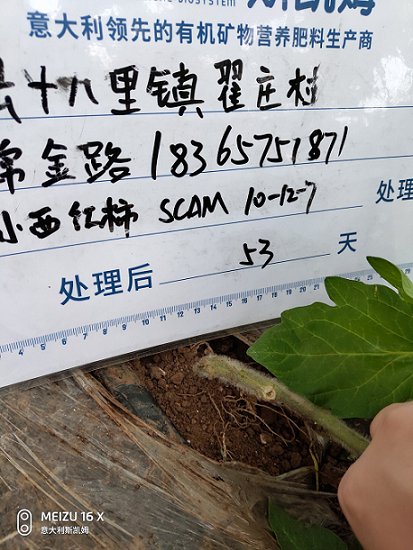 意大利领先的有机矿物营养肥料生产商
十八里镇翟庄村
金路 18365751871
小西红柿 SCAM 10-12-7 处理
处理后 53 天
4 5 6 7 8 9 10 11 12 13 14 15 16 17 18 19 20 21 22 23
MEIZU 16 X
意大利斯凯姆